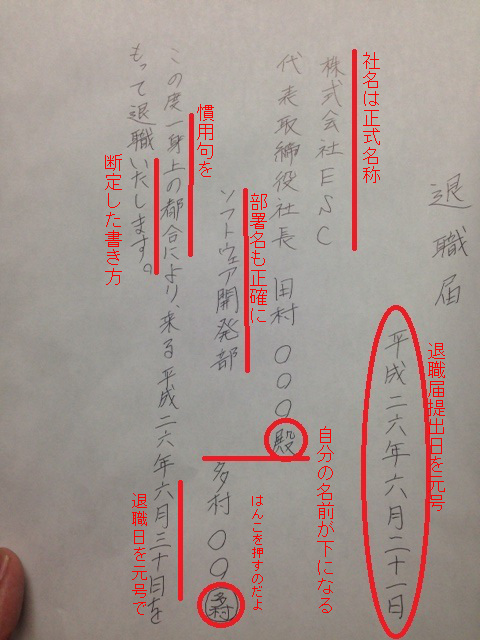 退職届
平成二六年六月二十一日
退職届提出日を元号
社名は正式名称
株式会社ESC
代表取締役社長 田村〇〇〇殿
自分の名前が下になる
部署名も正確に
ソフトウェア開発部
多村〇〇 多村
はんこを押すのだよ
慣用句を
この度一身上の都合により、来る平成二六年六月三十日を
退職日を元号で
もって退職いたします。
断定した書き方